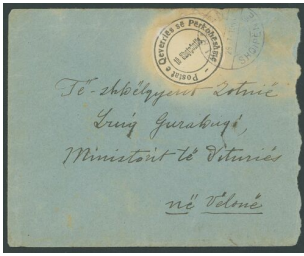 Postat e Qeverriës së Përkohëshme
Të-shkëlqyerit Zotnië
Luig Gurakuqi,
Ministrit të Dituriës
në Vlonë